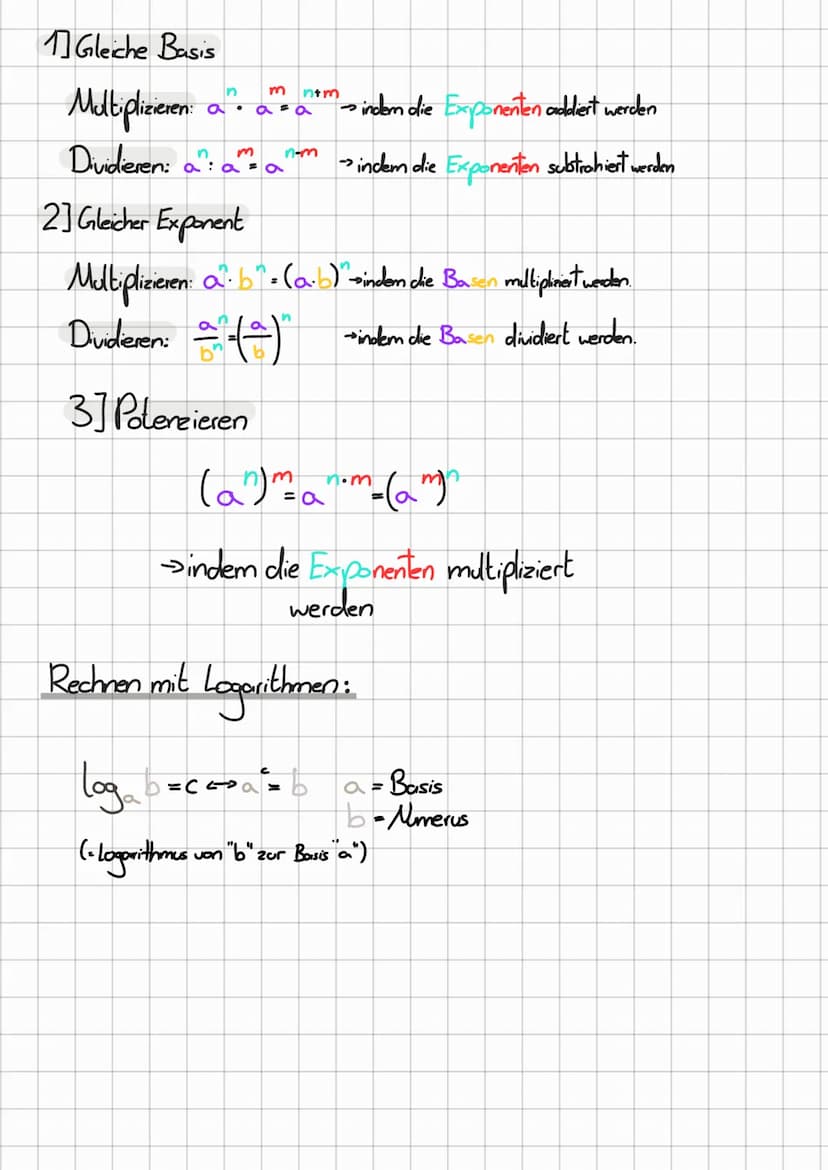 1] Gleiche Basis
Multiplizieren: aⁿ · aᵐ = aⁿ⁺ᵐ → indem die Exponenten addiert werden
Dividieren: aⁿ : aᵐ = aⁿ⁻ᵐ → indem die Exponenten subtrahiert werden
2] Gleicher Exponent
Multiplizieren: aⁿ · bⁿ = (a·b)ⁿ → indem die Basen multipliziert werden.
Dividieren: aⁿ/bⁿ = (a/b)ⁿ → indem die Basen dividiert werden.
3] Potenzieren
(aⁿ)ᵐ = aⁿ·ᵐ = (aᵐ)ⁿ
→ indem die Exponenten multipliziert
werden
Rechnen mit Logarithmen:
logₐ b = c ↔ aᶜ = b a = Basis
b = Numerus
(= Logarithmus von "b" zur Basis "a")